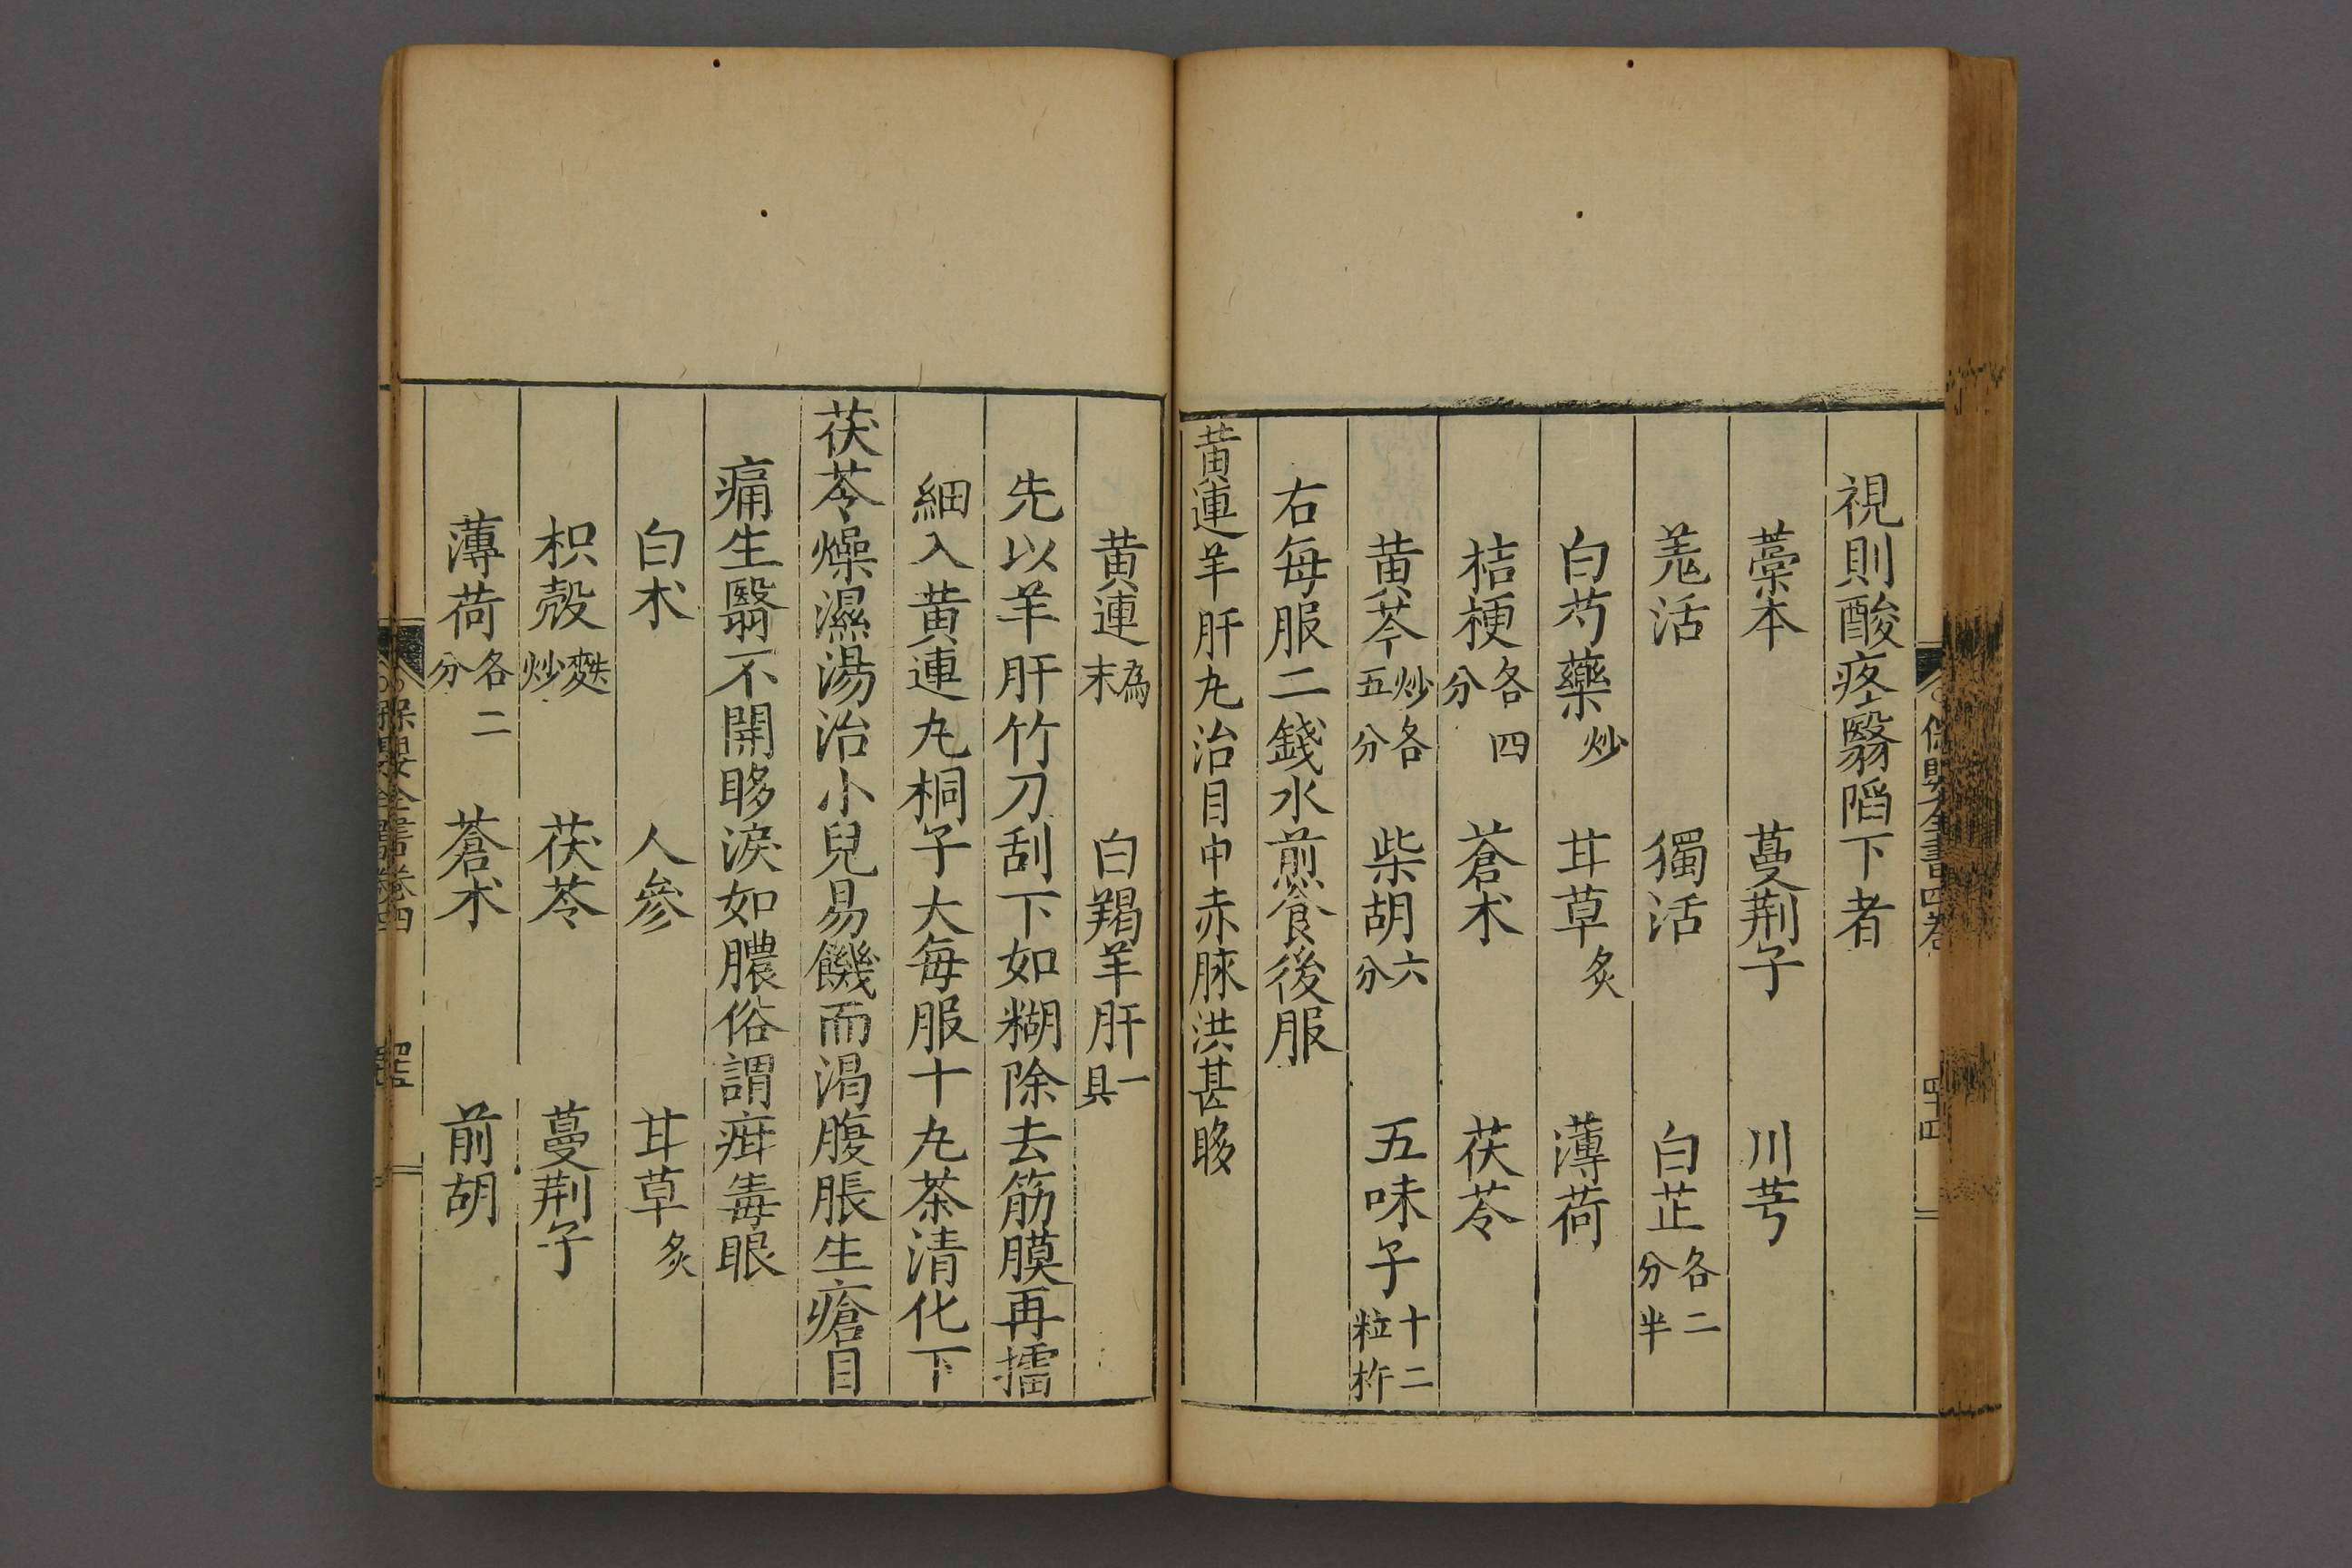 視則酸疼翳陷下者
藁本 蔓荆子 川芎
羗活 獨活 白芷各二分半
白芍藥炒 甘草炙 薄荷
桔梗各四分 蒼术 茯苓
黄芩炒各五分 柴胡六分 五味子十二粒杵
右每服二錢水煎食後服
黄連羊肝丸治目中赤脉洪甚眵
黄連為末 白羯羊肝一具
先以羊肝竹刀刮下如糊除去筋膜再擂
細入黄連丸桐子大每服十丸茶清化下
茯苓燥濕湯治小兒易饑而渴腹脹生瘡目
痛生翳不開眵淚如膿俗謂疳毒眼
白术 人參 甘草炙
枳殼麩炒 茯苓 蔓荆子
薄荷各二分 蒼术 前胡
保嬰全書卷四